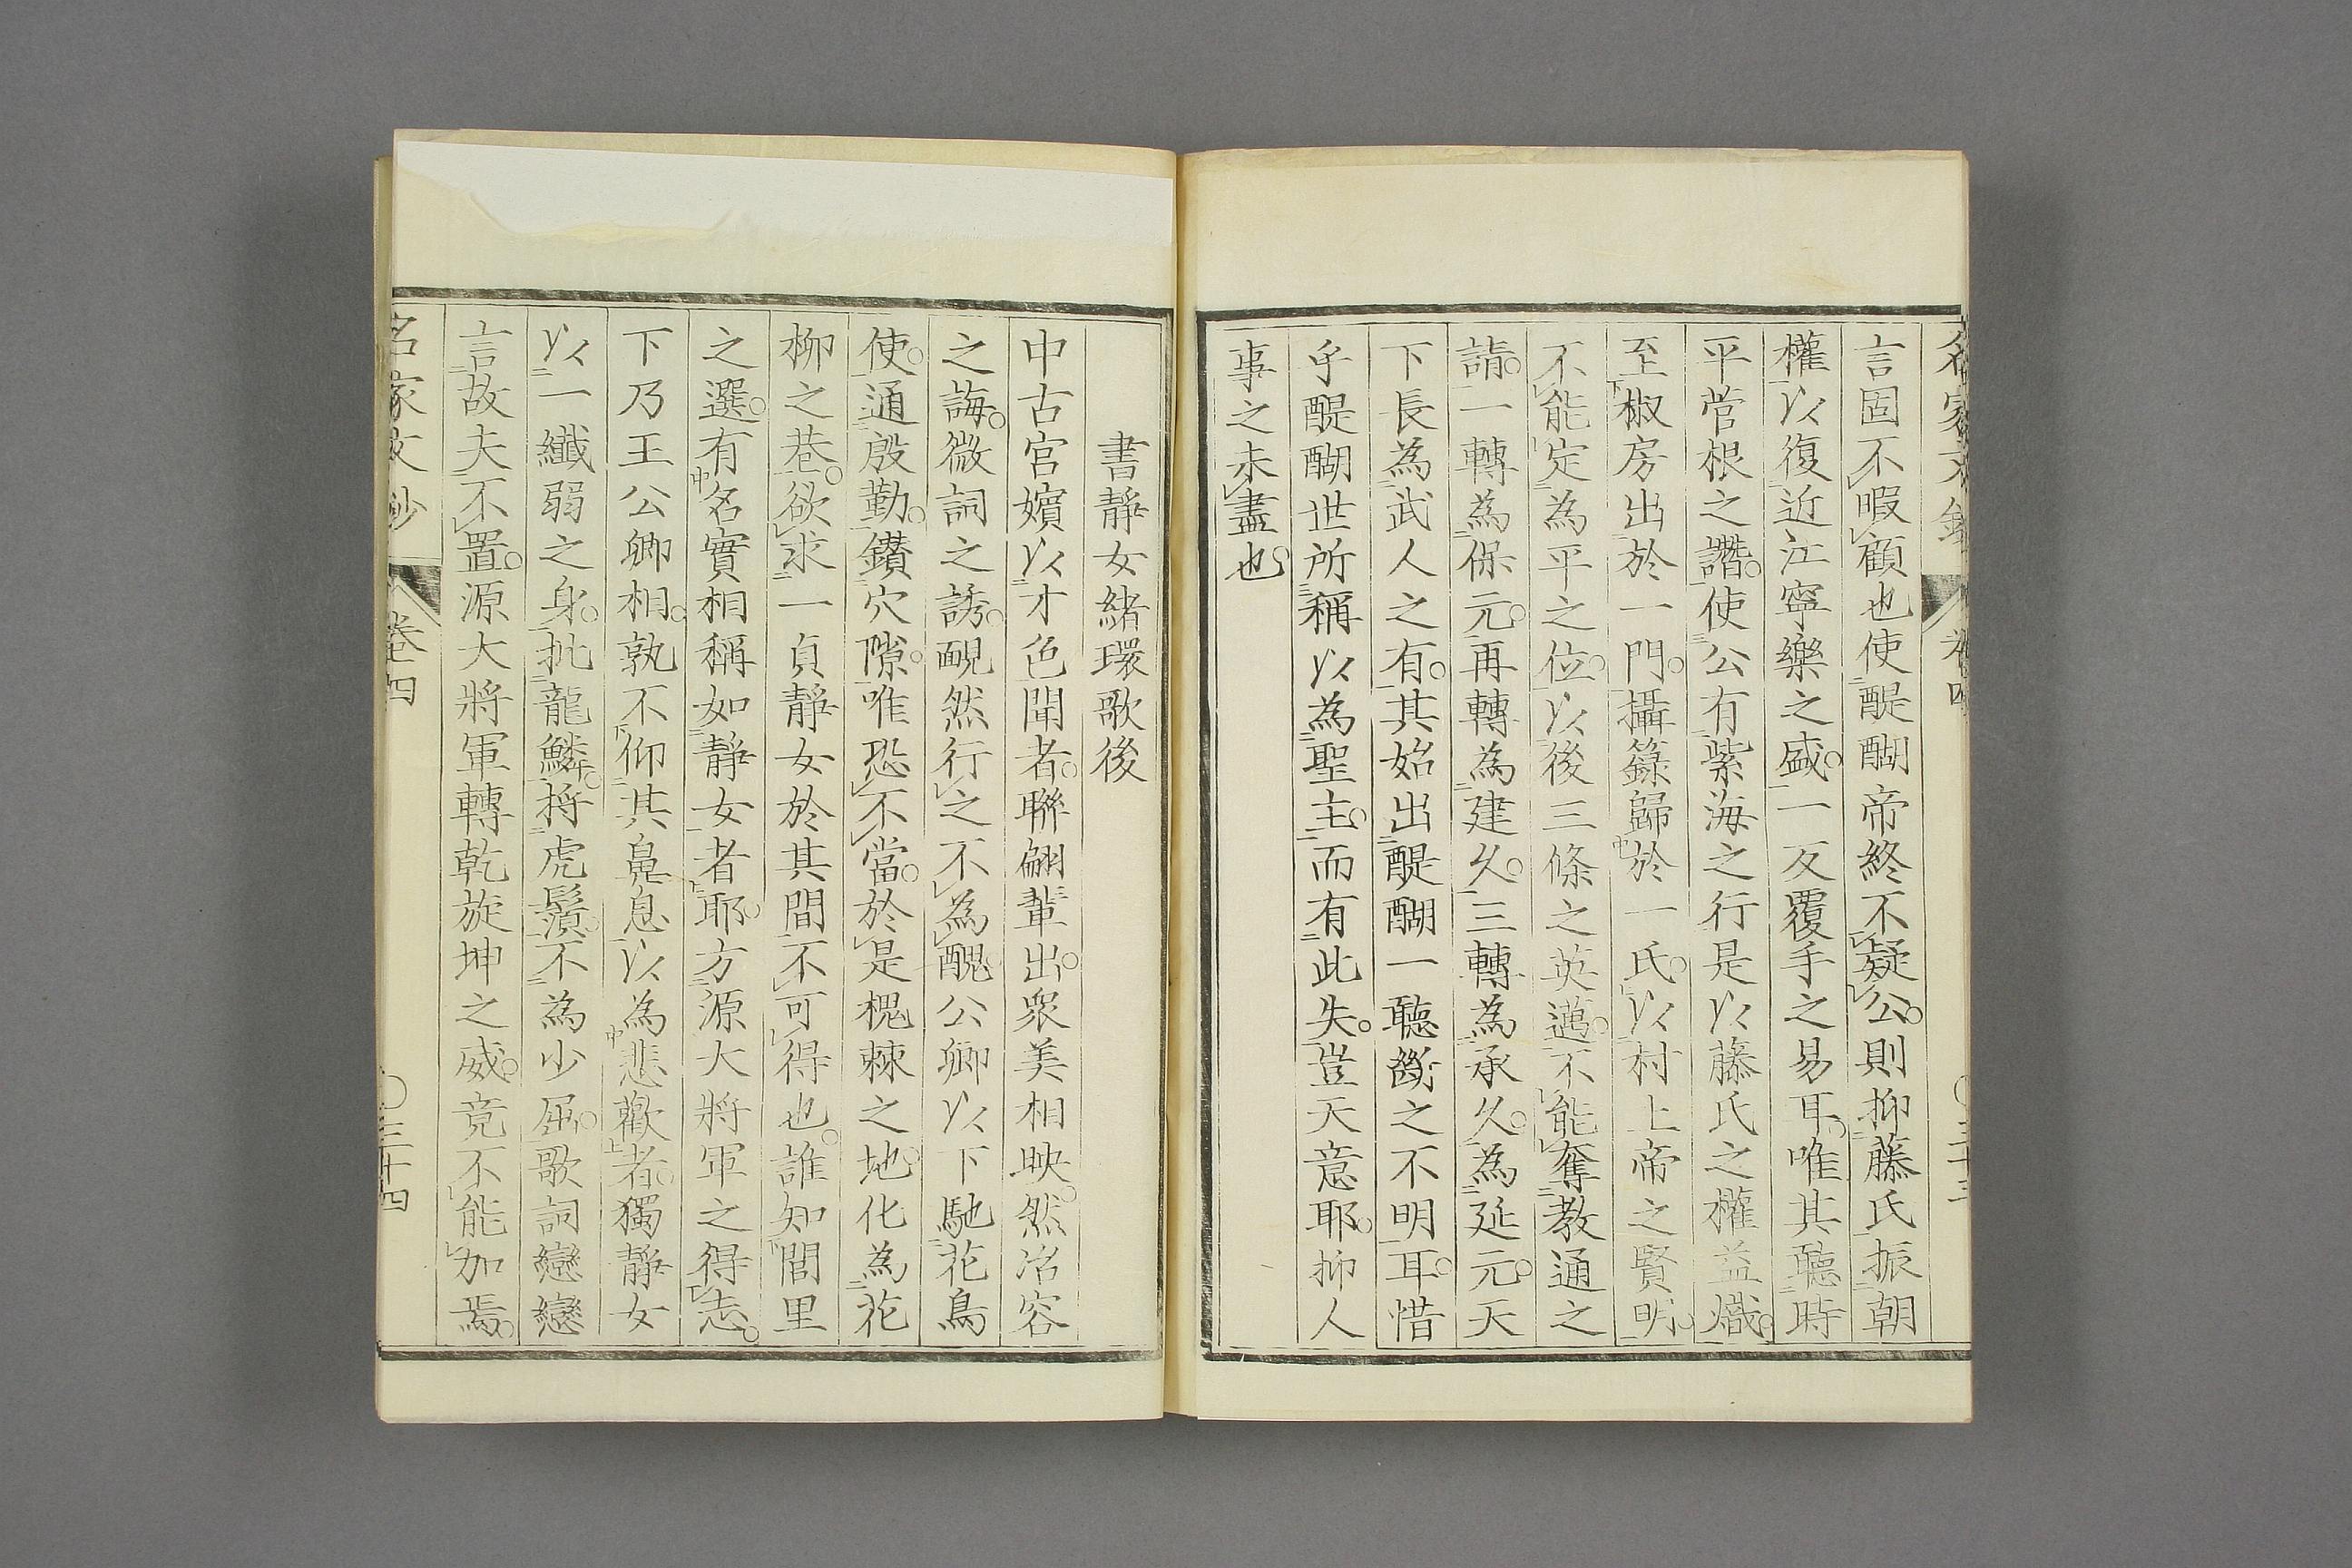 言固不暇顧也使醍醐帝終不疑公則抑藤氏振朝
權以復近江寧樂之盛一反覆手之易耳唯其聽時
平菅根之譖使公有紫海之行是以藤氏之權益熾
至椒房出於一門攝籙歸於一氏以村上帝之賢明
不能定為平之位以後三條之英邁不能奪教通之
請一轉為保元再轉為建久三轉為承久為延元天
下長為武人之有其始出醍醐一聽斷之不明耳惜
乎醍醐世所稱以為聖主而有此失豈天意耶抑人
事之未盡也
書靜女緒環歌後
中古宮嬪以才色聞者聯翩輩出眾美相映然冶容
之誨微詞之誘靦然行之不為醜公卿以下馳花鳥
使通殷勤鑽穴隙唯恐不當於是槐棘之地化為花
柳之巷欲求一貞靜女於其間不可得也誰知閭里
之選有名實相稱如靜女者耶方源大將軍之得志
下乃王公卿相孰不仰其鼻息以為悲歡者獨靜女
以一纖弱之身批龍鱗捋虎鬚不為少屈歌詞戀戀
言故夫不置源大將軍轉乾旋坤之威竟不能加焉
名家文鈔
卷四
三十四